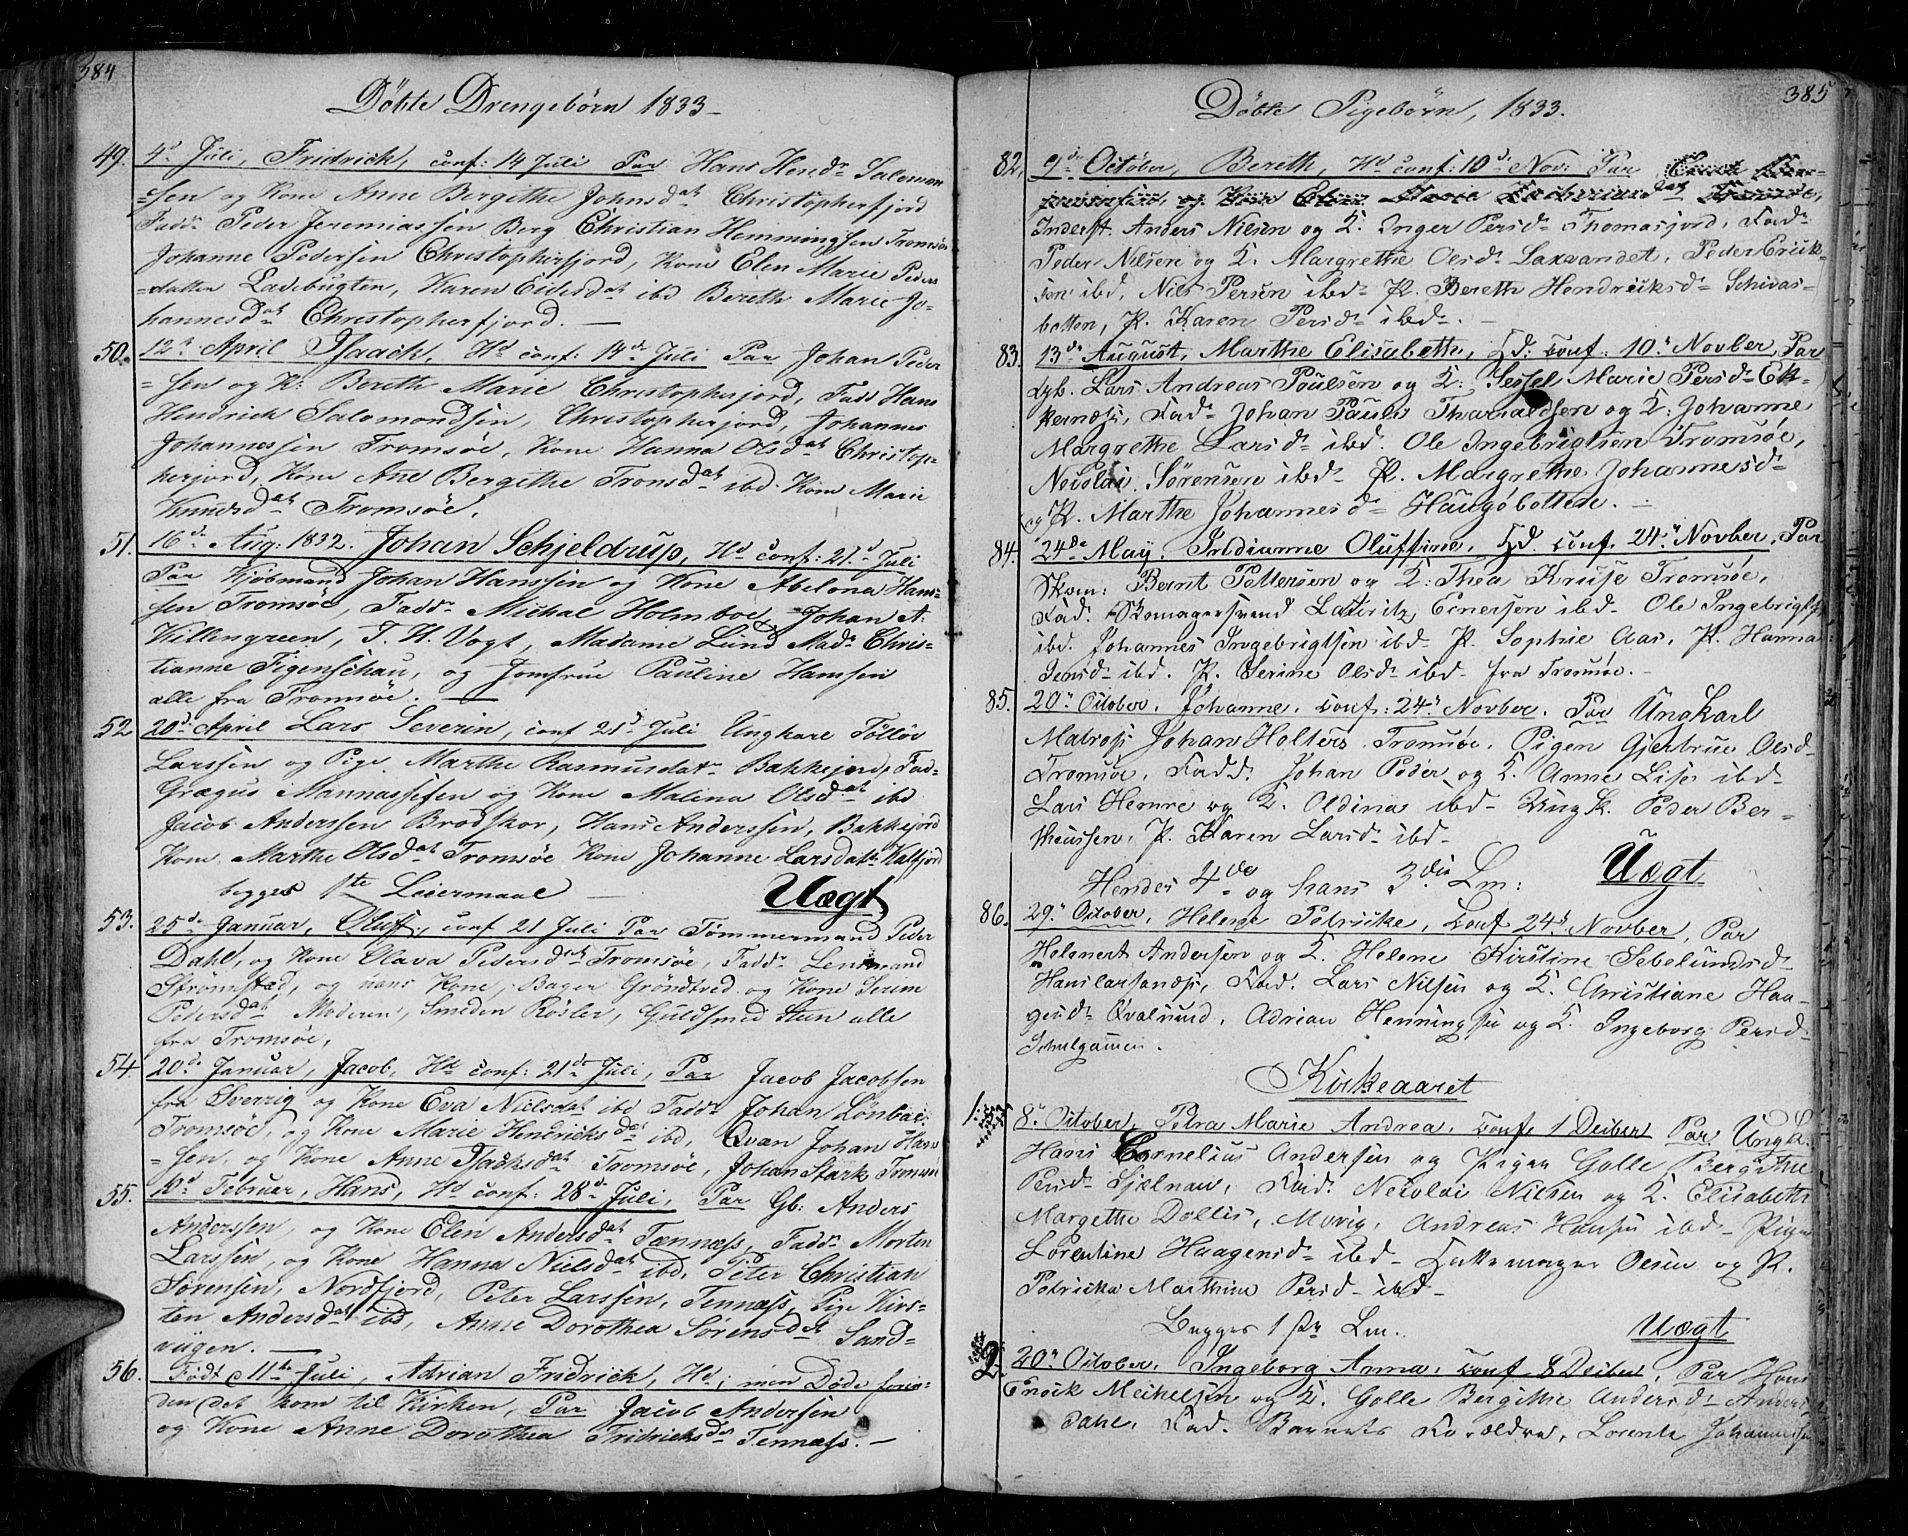 384
Döbte Drengebørn 1833-
49. 4d Juli, Fridrick, conf: 14 Juli Par Hans Hendr Salomon
=sen og Kone Anne Bergithe Johnsdat Christopherfjord
Fadd Peder Jeremiassen Berg Christian Hemmingsen Tromsøe
Johanne Pedersen Christopherfjord, Kone Elen Marie Peders
=datter Lavebugten, Karen Eidesdat ibd Bereth Marie Jo=
hannesdat Christopherfjord. —
50. 12te April Isaach, Hd conf: 14de Juli Par Johan Peder
=sen og K: Bereth Marie Christopherfjord, Fadd Hans
Hendrick Salomondsen, Christopherjord, Johannes
Johannessen Tromsøe, Kone Hanna Olsdat Christop=
herjord, Kone Ane Bergithe Tronsdat ibd. Kone Marie
Knudsdat Tromsøe.
51. 16de Aug: 1832. Johan Schjeldrup, Hd conf: 21d Juli
Par Kjøbmand Johan Hanssen og Kone Abelona Hans=
sen Tromsøe, Fadd: Michal Holmboe, Johan A:
Killengreen, J. H. Vogt, Madame Lund Madm Chris=
tianne Figenschau, og Jomfrue Pauline Hansen
alle fra Tromsøe. —
52 20de April Lars Severin, conf 21d Juli Ungkarl Tølløv
Larssen og Pige Marthe Rasmusdatr Bakkejord, Fad=
Græqus Mannassesen og Kone Malina Olsdat ibd
Jacob Anderssen Brodskor, Hans Anderssen, Bakkejord
Kone Marthe Olsdat Tromsøe Kone Johanne Larsdatr Kalfjord
begges 1ste Leiermaal — Uægt
53. 25de Januar, Oluff, conf 21 Juli Par Tømmermand Peder
Dahl, og Kone Olava Pedersdat Tromsøe, Fadd: Lensmand
Strømstæd, og hans Kone, Bager Grøndtved og Kone
Pedersdat Moderen, Smeden Røsler, Guldsmed Steen alle
fra Tromsøe,
54. 20de Januar, Jacob, Hd conf: 21de Juli, Par Jacob Jacobsen
fra Sverrig og Kone Eva Nielsdat ibd Fadd: Johan Lønbac
Tromsøe, og Kone Marie Hendricksdat ibd, Qvan Johan Hans
=sen, og Kone Anne Isachsdat Tromsøe, Johan Stark Tromsøe
55. 10d Februar, Hans, Hd conf: 28de Juli, Par Gb: Anders
Anderssen, og Kone Elen Andersdat Tennæss, Fadd: Morten
Larssen, og Kone Hanna Nielsdat ibd, Peter Christian
Sørensen, Nordfjord, Peter Larssen, Tennæss, Pige Kirs=
ten Andersdat ibd, Anne Dorothea Sørensdat Sand=
viigen. —
56. Født 11te Juli, Adrian Fridrick, Hd, men Døde foren=
den det kom til Kirken, Par Jacob Andersen
og Kone Anne Dorothea Fridricksdat Tennæss. —
385
Döbte Pigebørn, 1833.
82. 9de October, Bereth, Hd conf: 10de Nov: Par
Inderst. Anders Nilsen og K. Inger Persdr Thomasjord, Fadr
Peder Nilsen og K. Margrethe Olsdr Laxvandet, Peder Erick=
sen ibd, Nils Persen ibd- P. Bereth Hendriksdr Schivas=
botten, P. Karen Persdr ibd-. –
83. 13de August, Marthe Elisabeth, Hd: conf: 10de Novber, Par
Lgb. Lars Andreas Poulsen og K: Sessel Marie Persdr Ek=
kernæss, Fadr Johan Paul Tharaldsen og K: Johanne
Margrethe Larsdr ibd. Ole Ingebrigtsen Tromsøe,
Nicolai Sørensen ibd- P. Margrethe Johannesdr
og P. Marthe Johannesd- Haugøbotten. –
84. 24de May, Indianne Oluffine, Hd. conf. 24de Novber, Par
Skom: Bernt Pettersen og K: Thea Kruse Tromsøe,
Fad. Skomagersvend Lauritz Einersen ibd- Ole Ingebrigts
ibd. Johannes Ingebrigtsen ibd- P. Sophie Aas, P. Hanna
Jensdr ibd. P. Serine Olsdr ibd- fra Tromsøe. –
85. 20de October, Johanne, conf: 24de Novber, Par Ungkarl
Matross Johan Holters Tromsøe, Pigen Gjertrue Olsd-
Tromsøe, Fadd: Johan Peder og K. Anne Lise ibd-
Lars Hemne og K. Oldina ibd- Ungk. Peder Ber=
theussen, P. Karen Larsd- ibd-
Hendes 4de og hans 3die Lm: Uægt
86. 29de October, Helene Petricke, Conf 24de Novber, Par
Helmert Andersen og K. Helene Kirstine Sebelundsd-
Hanslarsanæs, Fad. Lars Nilsen og K. Christiane Haa=
gensd- Qvalsund, Adrian Henningsen og K. Ingeborg Persd-
Schulgammen.
Kirkeaaret
1. 8de October, Petra Marie Andrea, conf 1 Decber Par. Ungk.
Hans Cornelius Andersen og Pigen Golle Bergithe
Persd- Sjælnan, Fad. Nicolai Nilsen og K. Elisabeth
Margethe Dollis, Movig, Andreas Hansen ibd- Pigen
Lorentine Haagensd- ibd- Hattemager Olsen og P.
Petricka Marthine Persd- ibd-
Begges 1ste Lm. Uægt
2. 20de October, Ingeborg Anna, conf 8 Decber, Par Hans
Enock Mechelsen og K. Golle Bergithe Andersd- Anders
dahl. Fad. Barnets Forældre, Lorents Johannesen